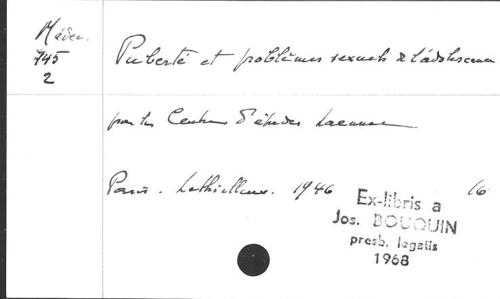 Méden.
745
2
Puberté et problèmes sexuels de l'adolescence
par le Centre d'études Laennec
Paris. Lethielleux. 1946 16
Ex-libris a
Jos. BOUQUIN
presb. legatis
1968